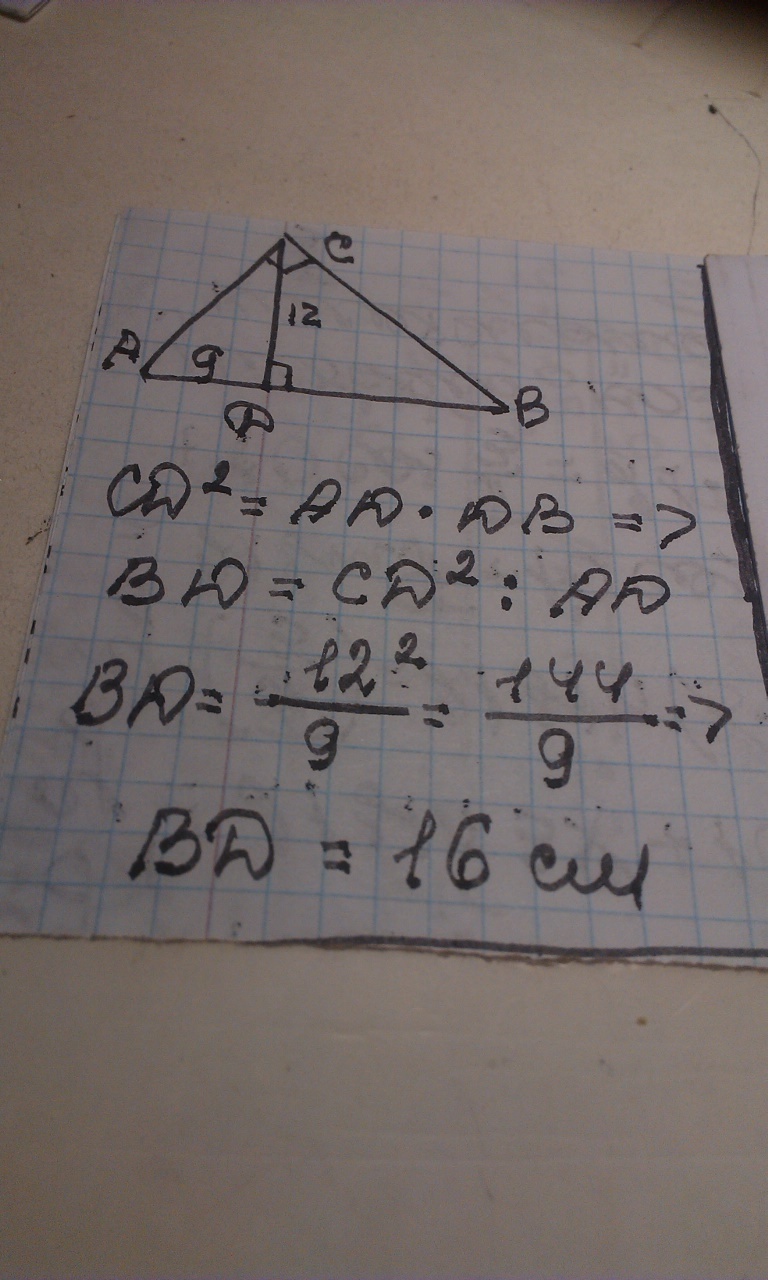 C
12
A
9
D
B
CD² = AD · DB =>
BD = CD² : AD
BD = 12²/9 = 144/9 =>
BD = 16 см